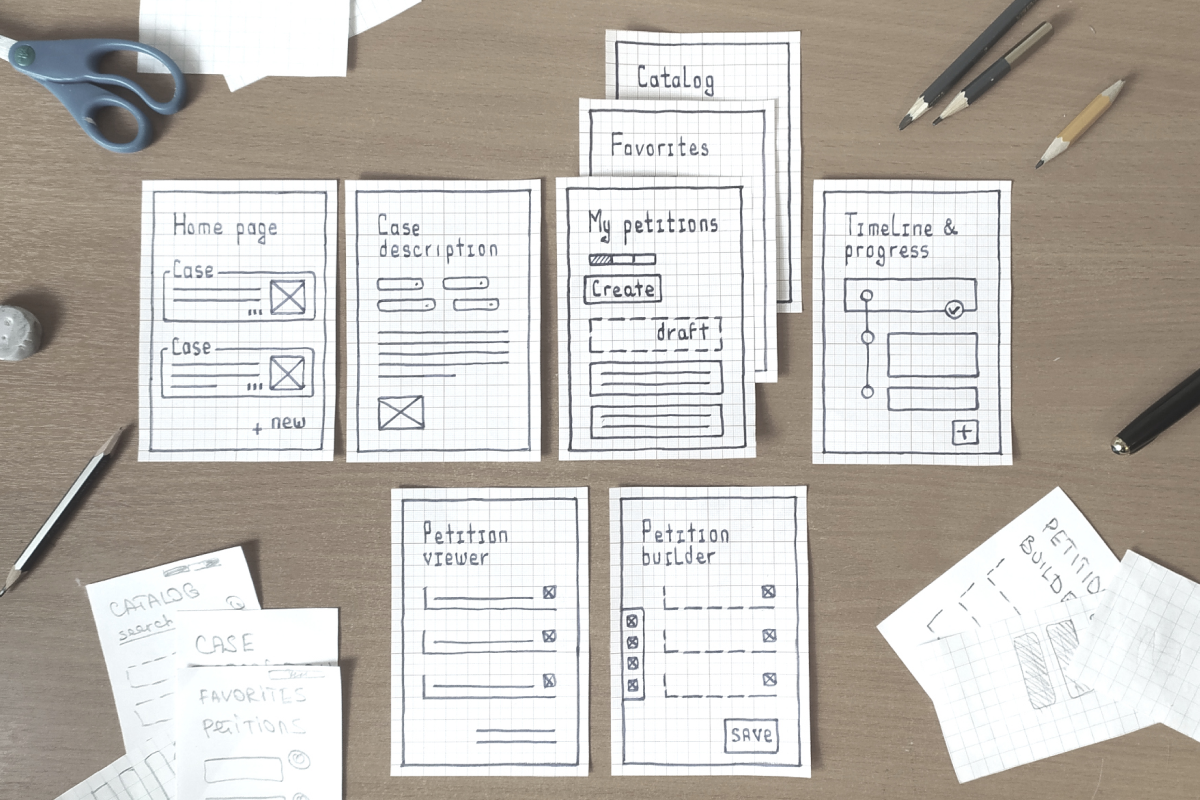 Catalog
Favorites
Home page
Case
Case
+ new
Case
description
My petitions
Create
draft
Timeline &
progress
+
Petition
viewer
Petition
builder
SAVE
CATALOG
search
CASE
FAVORITES
PETITIONS
PETITIO
BUILDE